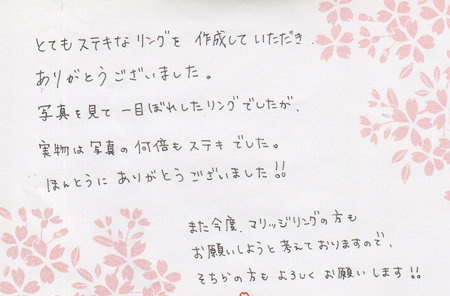 とてもステキなリングを 作成していただき
ありがとうございました。
写真を見て一目ぼれしたリングでしたが、
実物は写真の何倍もステキでした。
ほんとうに ありがとうございました!!
また今度、マリッジリングの方も
お願いしようと考えておりますので、
そちらの方も よろしく お願いします!!